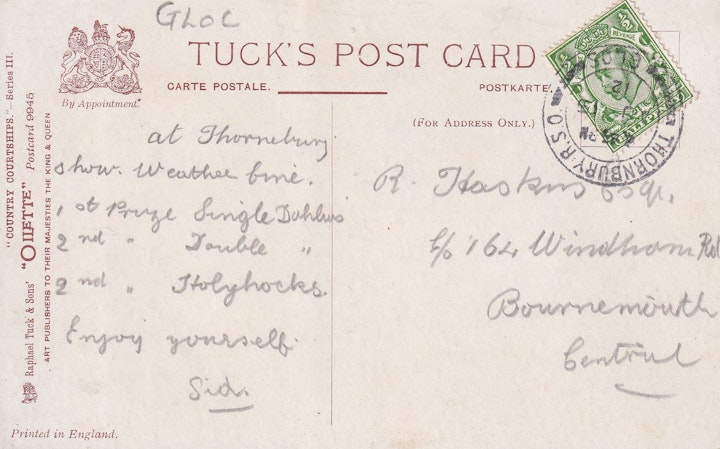 GLOC
TUCK'S POST CARD
CARTE POSTALE.
POSTKARTE.
By Appointment.
(FOR ADDRESS ONLY.)
"COUNTRY COURTSHIPS."—Series III.
Raphael Tuck & Sons' "OILETTE" Postcard 9945
ART PUBLISHERS TO THEIR MAJESTIES THE KING & QUEEN
at Thornebury
show. Weather fine.
1st Prize Single Dahlias
2nd " Double "
2nd " Holyhocks.
Enjoy yourself.
Sid.
R. Haskins Esqr.
c/o 164 Windham Rd
Bournemouth
Central
REVENUE
THORNBURY R.S.O.
12
Printed in England.